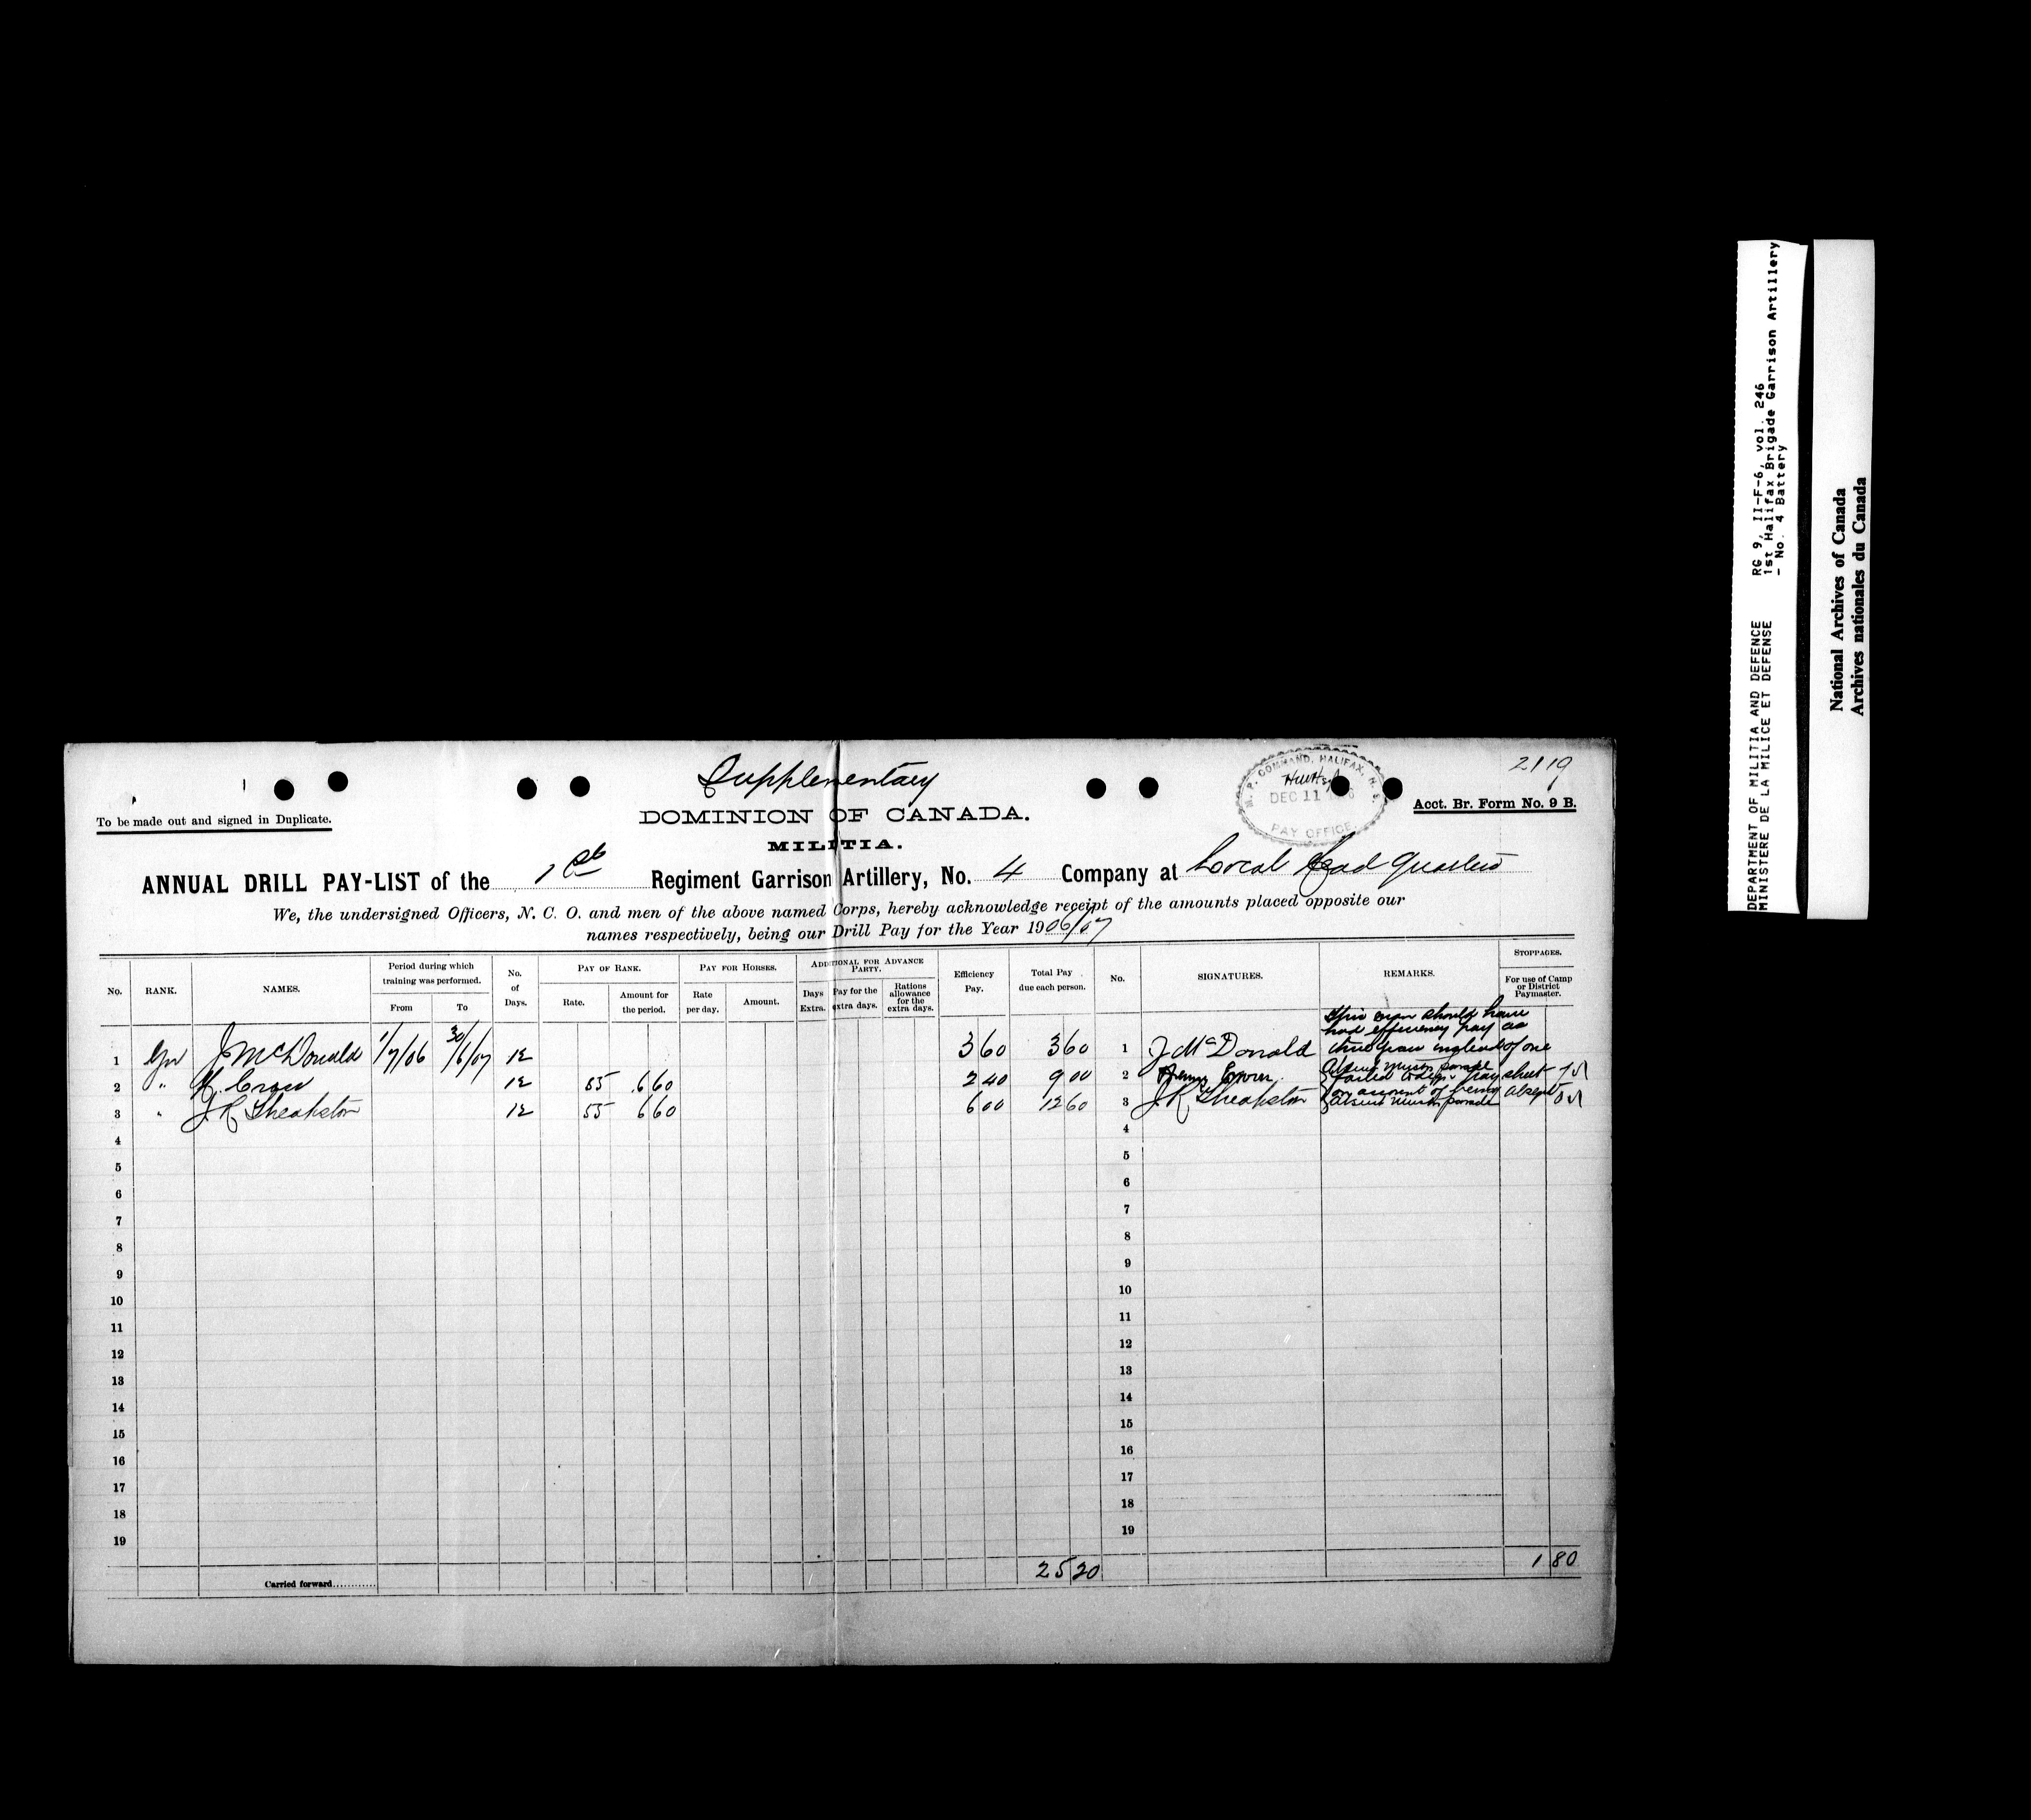 Supplementary
2119
M. P. COMMAND, HALIFAX, N. S.
DEC 11
PAY OFFICE
To be made out and signed in Duplicate.
DOMINION OF CANADA.
Acct. Br. Form No. 9 B.
MILITIA.
ANNUAL DRILL PAY-LIST of the 1st Regiment Garrison Artillery, No. 4 Company at Local Head Quarters
We, the undersigned Officers, N. C. O. and men of the above named Corps, hereby acknowledge receipt of the amounts placed opposite our
names respectively, being our Drill Pay for the Year 1906/07
No. RANK. NAMES. Period during which training was performed. From To No. of Days. PAY OF RANK. Rate. Amount for the period. PAY FOR HORSES. Rate per day. Amount. ADDITIONAL FOR ADVANCE PARTY. Days Extra. Pay for the extra days. Rations allowance for the extra days. Efficiency Pay. Total Pay due each person. No. SIGNATURES. REMARKS. STOPPAGES. For use of Camp or District Paymaster.
This man should have
had efficiency pay as
1 Gnr J McDonald 1/7/06 30/6/07 12 3 60 3 60 1 J McDonald three years instead of one
2 " H. 12 55 6 60 2 40 9 00 2 failed to sign pay sheet
3 " J R Theakston 12 55 6 60 6 00 12 60 3 J R Theakston on account of being absent
4 4
5 5
6 6
7 7
8 8
9 9
10 10
11 11
12 12
13 13
14 14
15 15
16 16
17 17
18 18
19 19
Carried forward............ 25 20 1 80
DEPARTMENT OF MILITIA AND DEFENCE RG 9, II-F-6, vol. 246
MINISTERE DE LA MILICE ET DEFENSE 1st Halifax Brigade Garrison Artillery
- No. 4 Battery
National Archives of Canada
Archives nationales du Canada